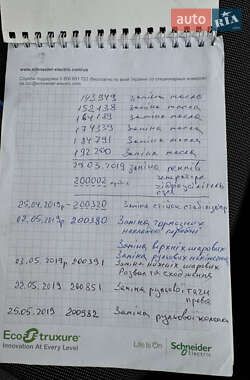 AUTO RIA
www.schneider-electric.com.ua
143 949 заміна масла
152 138 заміна масла
164 189 заміна масла
174 339 заміна масла
184 791 заміна масла
192 200 заміна масла
29.03.2019 заміна ременів
200002 генератора
25.04.2019р - 200320 Заміна стійок стабілізатора
02.05.2019р 200380 Заміна гормозних
Заміна верхніх шарових
Заміна рульових
03.05.2019р 200391 Заміна нижніх шарових
Розвал та сходження
22.05.2019 200851 Заміна рульової тяги
права
25.05.2019 200932 Заміна рульової колонки
EcoStruxure
Innovation At Every Level
Life Is On
Schneider
Electric